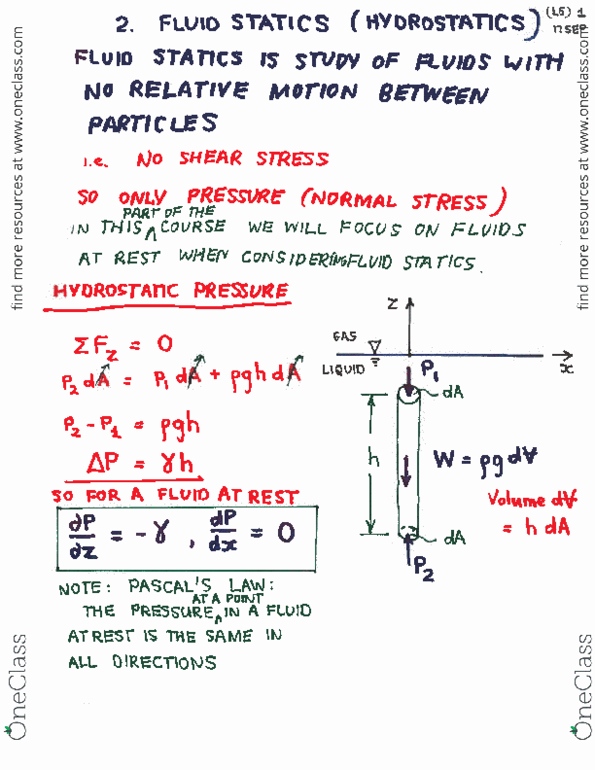 2. FLUID STATICS (HYDROSTATICS)
(L5) 1
17 SEP
FLUID STATICS IS STUDY OF FLUIDS WITH
NO RELATIVE MOTION BETWEEN
PARTICLES
i.e. NO SHEAR STRESS
SO ONLY PRESSURE (NORMAL STRESS)
PART OF THE
IN THIS ^ COURSE WE WILL FOCUS ON FLUIDS
AT REST WHEN CONSIDERING FLUID STATICS.
HYDROSTATIC PRESSURE
ΣFz = 0
P2 dA = P1 dA + ρgh dA
P2 - P1 = ρgh
ΔP = γh
SO FOR A FLUID AT REST
∂P/∂z = -γ , dP/dx = 0
NOTE: PASCAL'S LAW:
AT A POINT
THE PRESSURE ^ IN A FLUID
AT REST IS THE SAME IN
ALL DIRECTIONS
z
GAS
LIQUID
x
P1
dA
h
W = ρg dV
Volume dV
= h dA
dA
P2
find more resources at www.oneclass.com
find more resources at www.oneclass.com
OneClass
OneClass